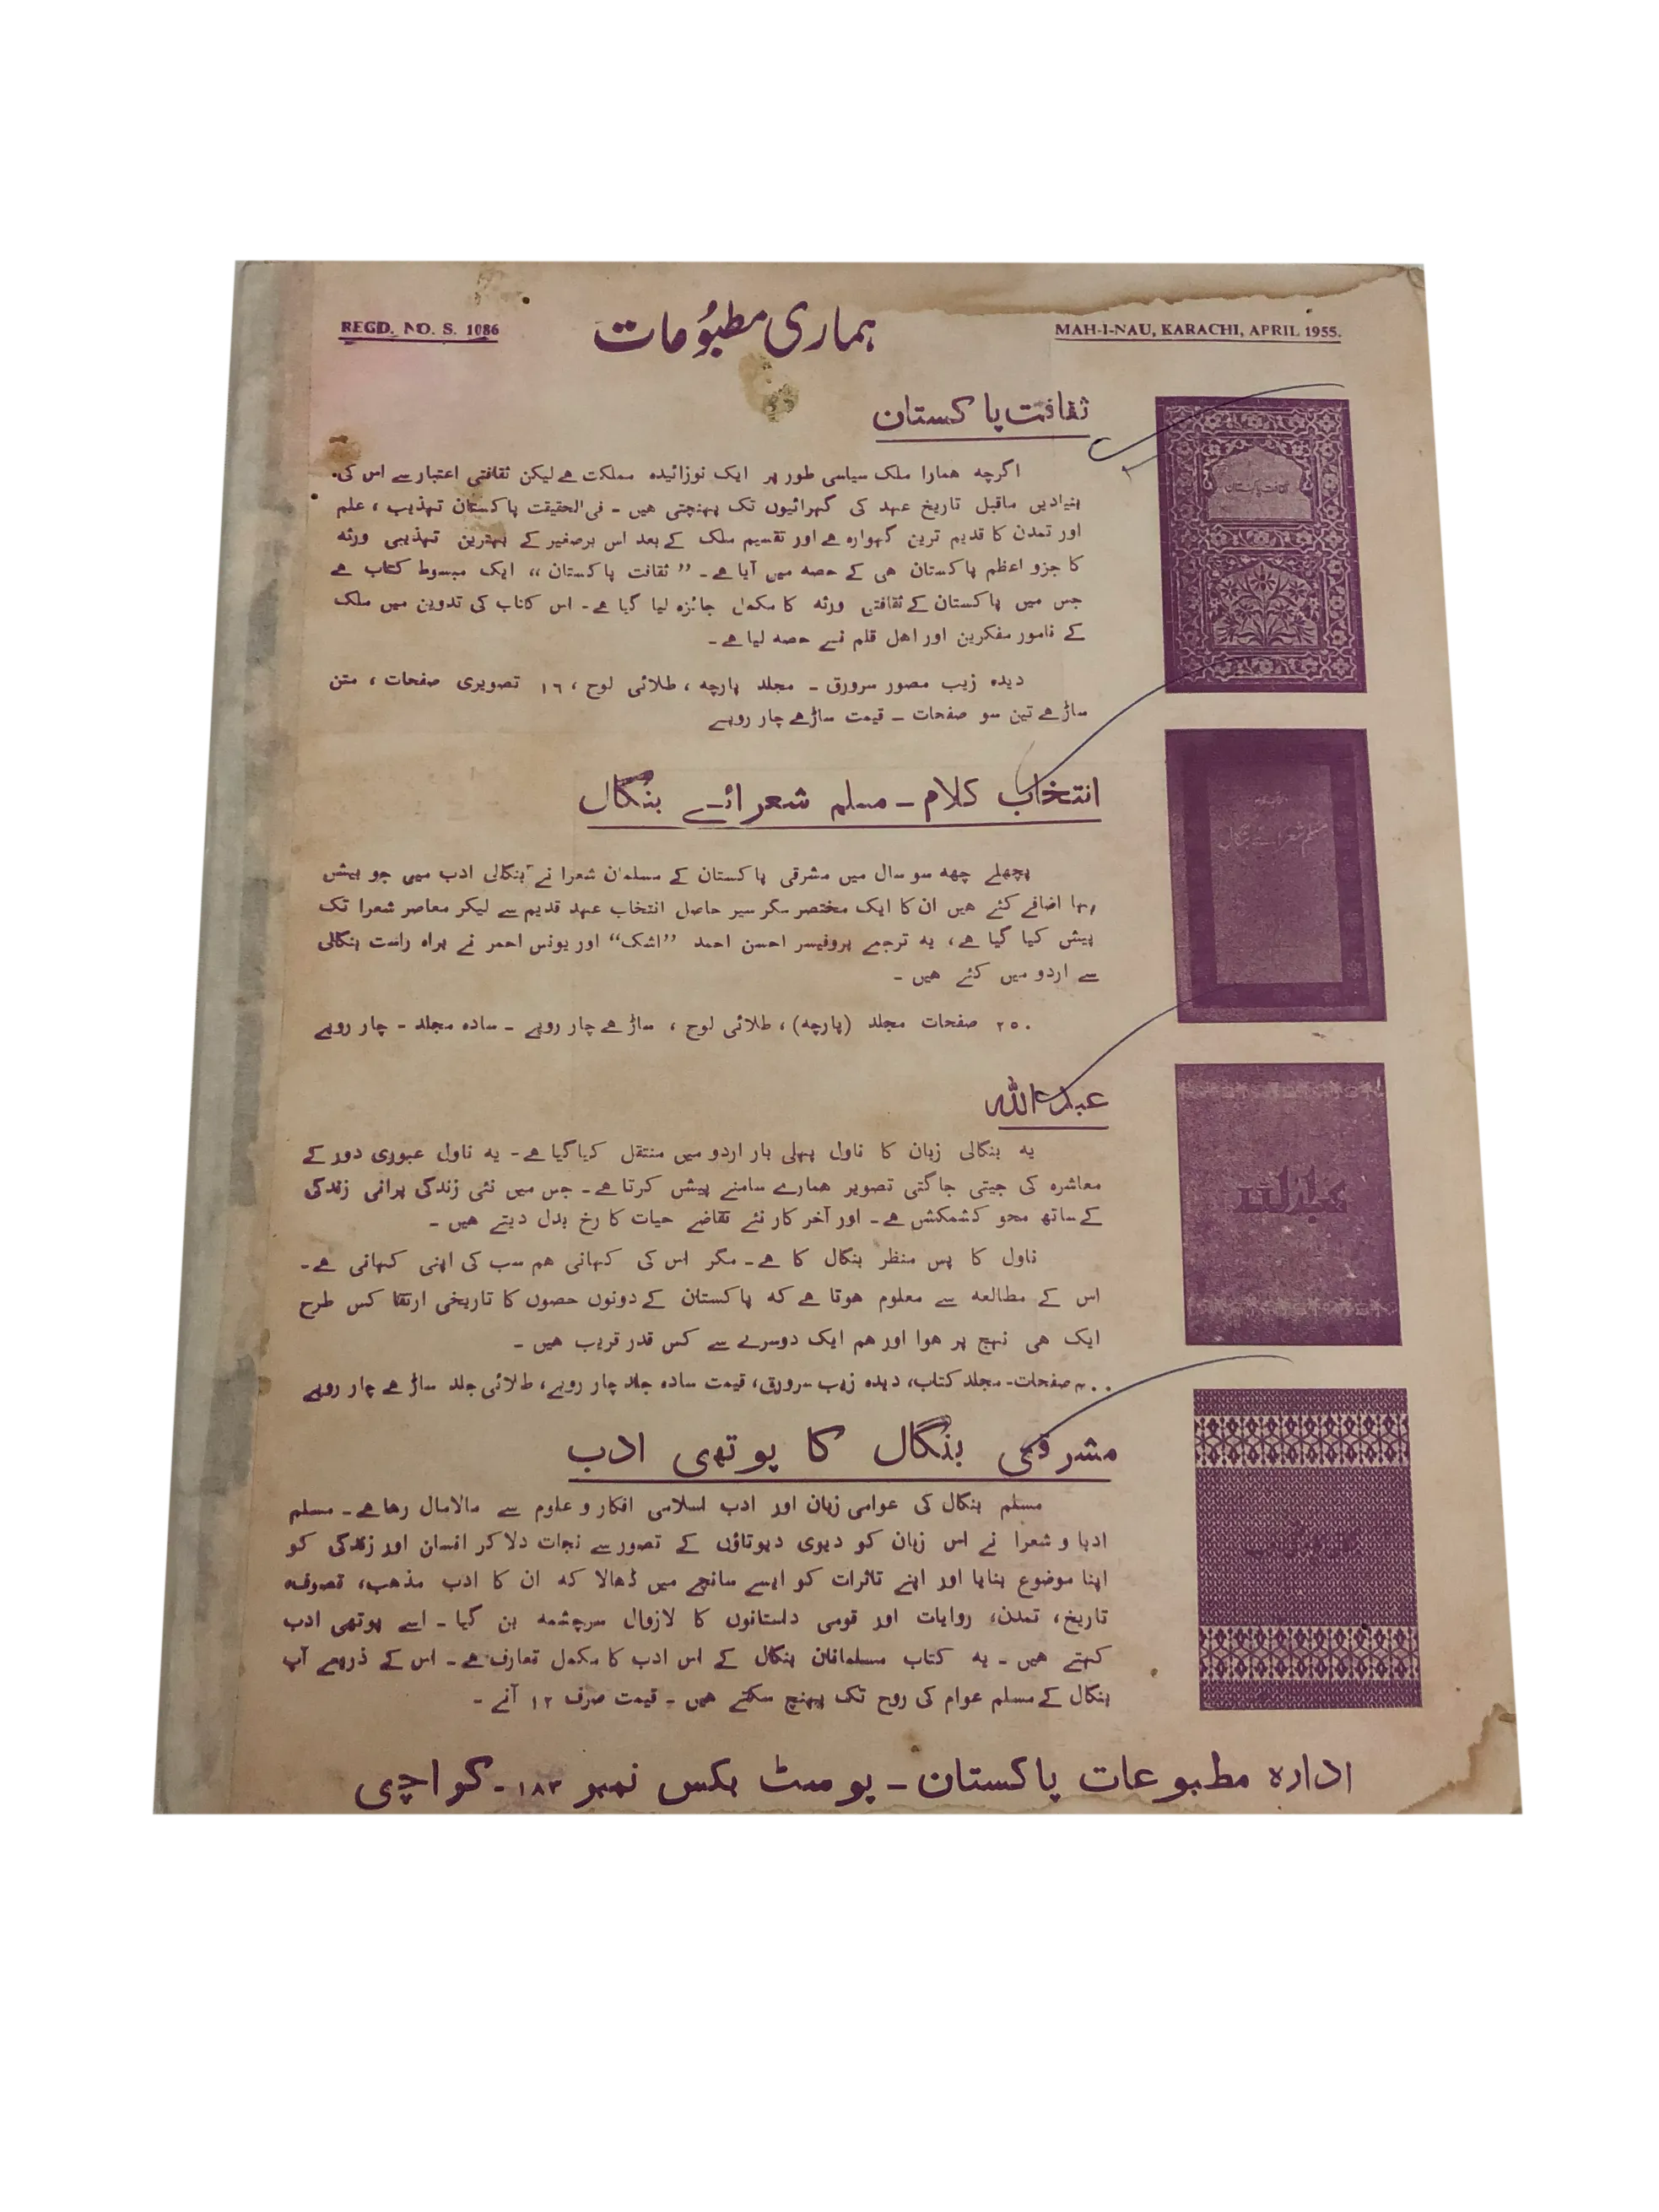 REGD. NO. S. 1086
ہماری مطبُوعات
MAH-I-NAU, KARACHI, APRIL 1955.
ثقافت پاکستان
اگرچہ ھمارا ملک سیاسی طور پر ایک نوزائیدہ مملکت ھے لیکن ثقافتی اعتبار سے اس کی
بنیادیں ماقبل تاریخ عہد کی گہرائیوں تک پہنچتی ھیں ۔ فی الحقیقت پاکستان تہذیب ، علم
اور تمدن کا قدیم ترین گہوارہ ھے اور تقسیم ملک کے بعد اس برصغیر کے بہترین تہذیبی ورثہ
کا جزو اعظم پاکستان ھی کے حصہ میں آیا ھے ۔ ”ثقافت پاکستان“ ایک مبسوط کتاب ھے
جس میں پاکستان کے ثقافتی ورثہ کا مکمل جائزہ لیا گیا ھے ۔ اس کتاب کی تدوین میں ملک
کے نامور مفکرین اور اھل قلم نے حصہ لیا ھے ۔
دیدہ زیب مصور سرورق ۔ مجلد پارچہ ، طلائی لوح ، ۱٦ تصویری صفحات ، متن
ساڑھے تین سو صفحات ۔ قیمت ساڑھے چار روپے
ثقافت پاکستان
انتخاب کلام ۔ مسلم شعرائے بنگال
پچھلے چھہ سو سال میں مشرقی پاکستان کے مسلمان شعرا نے بنگالی ادب میں جو بیش
بہا اضافے کئے ھیں ان کا ایک مختصر مگر سیر حاصل انتخاب عہد قدیم سے لیکر معاصر شعرا تک
پیش کیا گیا ھے ، یہ ترجمے پروفیسر احسن احمد ”اشک“ اور یونس احمر نے براہ راست بنگالی
سے اردو میں کئے ھیں ۔
۲۵۰ صفحات مجلد (پارچہ) ، طلائی لوح ، ساڑھے چار روپے ۔ سادہ مجلد ۔ چار روپے
مسلم شعرائے بنگال
عبداللہ
یہ بنگالی زبان کا ناول پہلی بار اردو میں منتقل کیا گیا ھے ۔ یہ ناول عبوری دور کے
معاشرہ کی جیتی جاگتی تصویر ھمارے سامنے پیش کرتا ھے ۔ جس میں نئی زندگی پرانی زندگی
کے ساتھ محو کشمکش ھے ۔ اور آخر کار نئے تقاضے حیات کا رخ بدل دیتے ھیں ۔
ناول کا پس منظر بنگال کا ھے ۔ مگر اس کی کہانی ھم سب کی اپنی کہانی ھے ۔
اس کے مطالعہ سے معلوم ھوتا ھے کہ پاکستان کے دونوں حصوں کا تاریخی ارتقا کس طرح
ایک ھی نہج پر ھوا اور ھم ایک دوسرے سے کس قدر قریب ھیں ۔
صفحات ۔ مجلد کتاب ، دیدہ زیب سرورق ، قیمت سادہ جلد چار روپے ، طلائی جلد ساڑھے چار روپے
عبداللہ
مشرقی بنگال کا پوتھی ادب
مسلم بنگال کی عوامی زبان اور ادب اسلامی افکار و علوم سے مالامال رھا ھے ۔ مسلم
ادبا و شعرا نے اس زبان کو دیوی دیوتاؤں کے تصور سے نجات دلا کر انسان اور زندگی کو
اپنا موضوع بنایا اور اپنے تاثرات کو ایسے سانچے میں ڈھالا کہ ان کا ادب مذھب ، تصوف ،
تاریخ ، تمدن ، روایات اور قومی داستانوں کا لازوال سرچشمہ بن گیا ۔ اسے پوتھی ادب
کہتے ھیں ۔ یہ کتاب مسلمانان بنگال کے اس ادب کا مکمل تعارف ھے ۔ اس کے ذریعے آپ
بنگال کے مسلم عوام کی روح تک پہنچ سکتے ھیں ۔ قیمت صرف ۱۲ آنے ۔
ادارہ مطبوعات پاکستان ۔ پوسٹ بکس نمبر ۱۸۳ ۔ کراچی